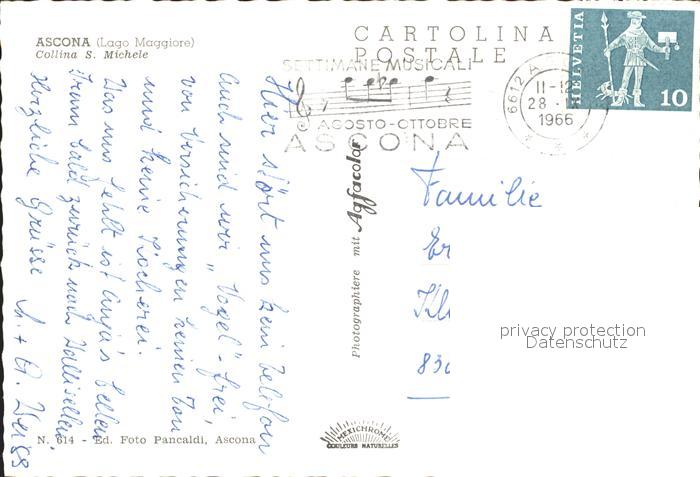 ASCONA (Lago Maggiore)
Collina S. Michele
CARTOLINA
POSTALE
SETTIMANE MUSICALI
AGOSTO-OTTOBRE
ASCONA
6612 A
11-12
28
1966
HELVETIA
10
Hier stört uns kein Telefon
auch sind wir „Vogel"-frei,
von Versicherungen keinen Ton
und keine Kocherei.
Das uns fehlt ist Anja's bellen
drum bald zurück nach Wallisellen.
Herzliche Grüsse A. + A. Weiss
Photographiere mit Agfacolor
Familie
Er
Kl
830
privacy protection
Datenschutz
MEXICHROME
COULEURS NATURELLES
N. 614 - Ed. Foto Pancaldi, Ascona